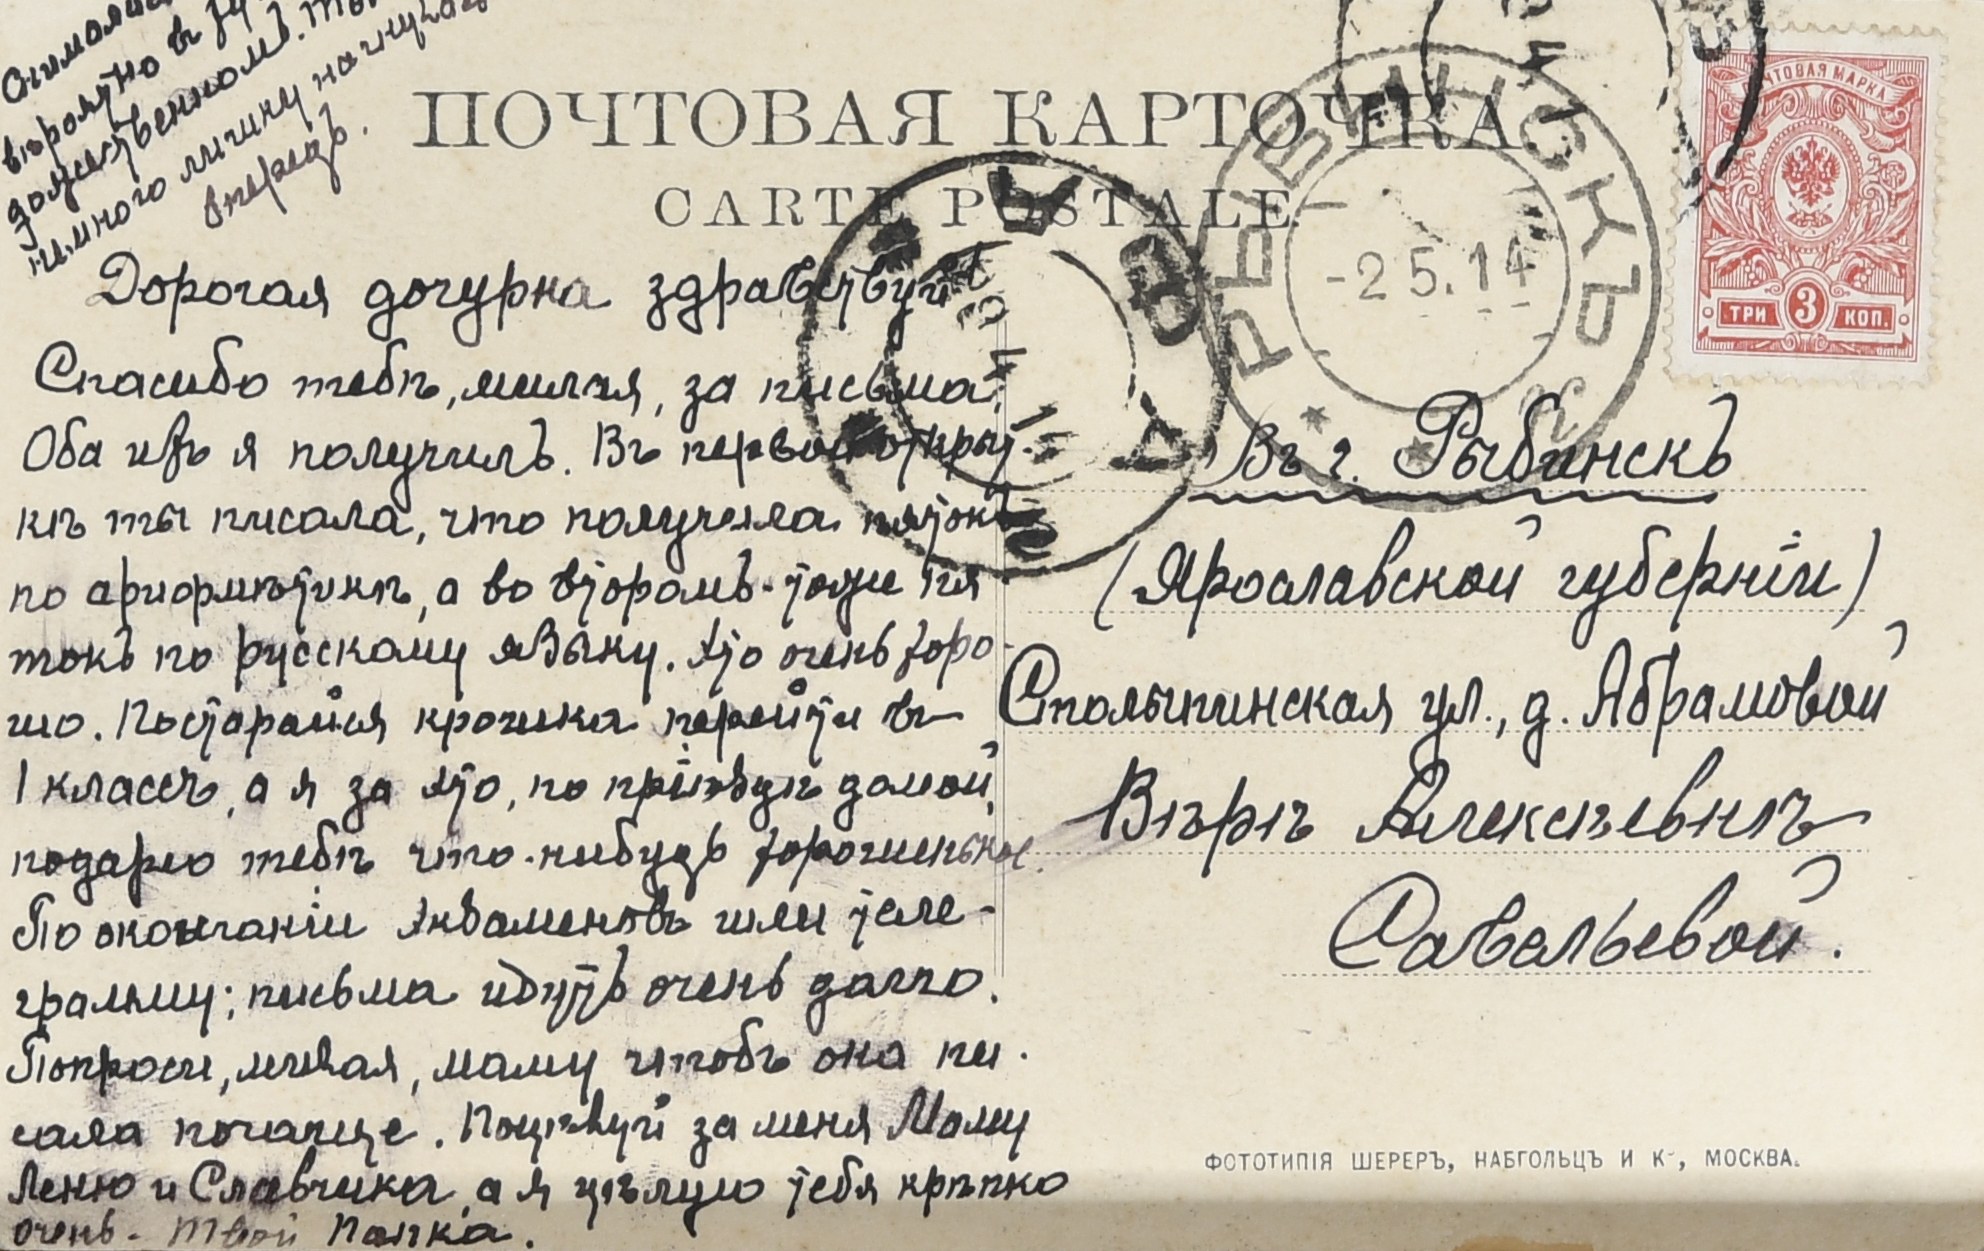 вѣроятно въ
немного личику
впередъ.
ПОЧТОВАЯ КАРТОЧКА
CARTE POSTALE
РЫБИНСКЪ
-2 5.14
ПОЧТОВАЯ МАРКА
ТРИ 3 КОП.
Дорогая дочурка здравствуй!
Спасибо тебѣ, милая, за письма.
Оба ихъ я получилъ. Въ первой откры-
кѣ ты писала, что получила пятокъ
по ариѳметикѣ, а во второмъ - тоже пя
токъ по русскому языку. Это очень хоро-
шо. Постарайся крошка перейти въ
I классъ, а я за это, по пріѣздѣ домой,
подарю тебѣ что-нибудь хорошенькое.
По окончаніи экзаменовъ шли теле-
грамму; письма идутъ очень долго.
Попроси, милая, маму чтобъ она пи-
сала почаще. Поцѣлуй за меня Маму
Леню и Славчика, а я цѣлую тебя крѣпко
очень - Твой Папка.
Въ г. Рыбинскъ
(Ярославской губерніи)
Столыпинская ул., д. Абрамовой
Вѣрѣ Алексѣевнѣ
Савельевой.
ФОТОТИПІЯ ШЕРЕРЪ, НАБГОЛЬЦЪ И К-, МОСКВА.